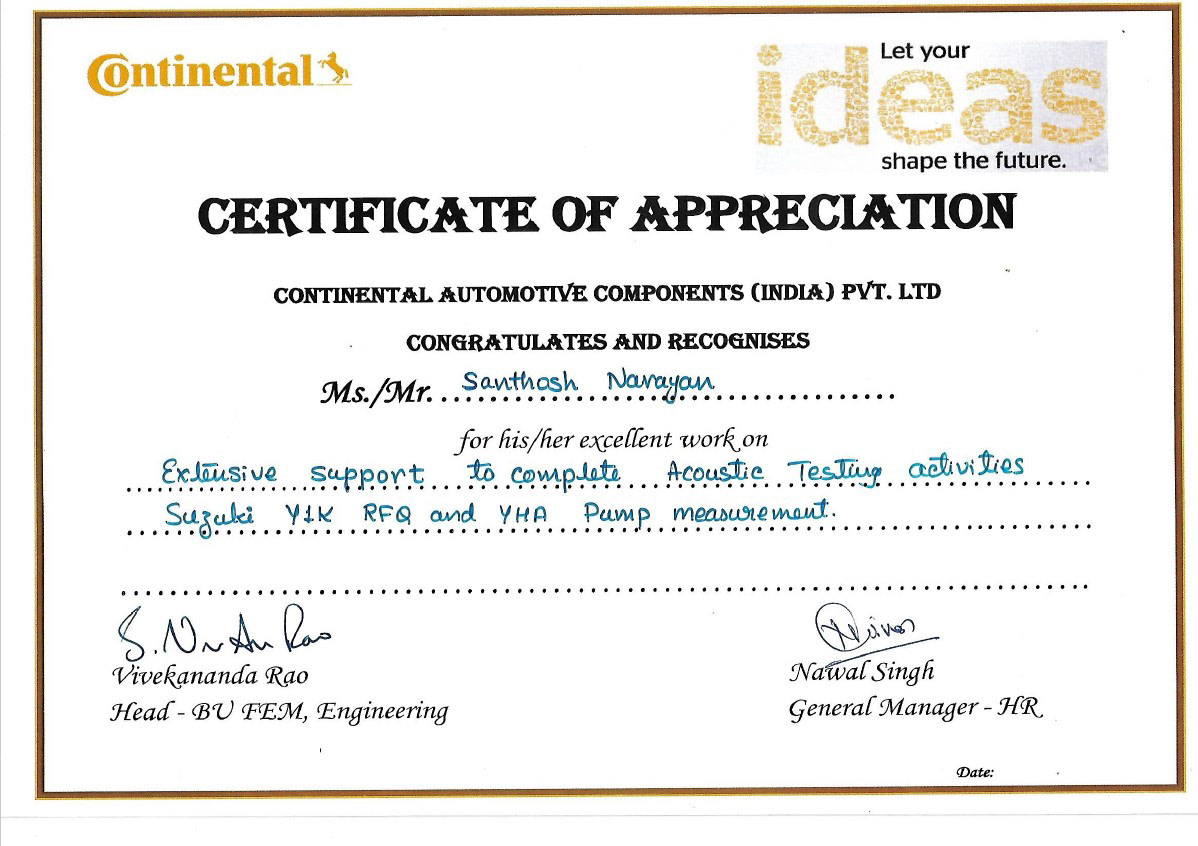 Continental
Let your
ideas
shape the future.
CERTIFICATE OF APPRECIATION
CONTINENTAL AUTOMOTIVE COMPONENTS (INDIA) PVT. LTD
CONGRATULATES AND RECOGNISES
Ms./Mr. Santhosh Narayan
for his/her excellent work on
Extensive support to complete Acoustic Testing activities
Suzuki Y1K RFQ and YHA Pump measurement.
Vivekananda Rao
Head - BU FEM, Engineering
Nawal Singh
General Manager - HR
Date: